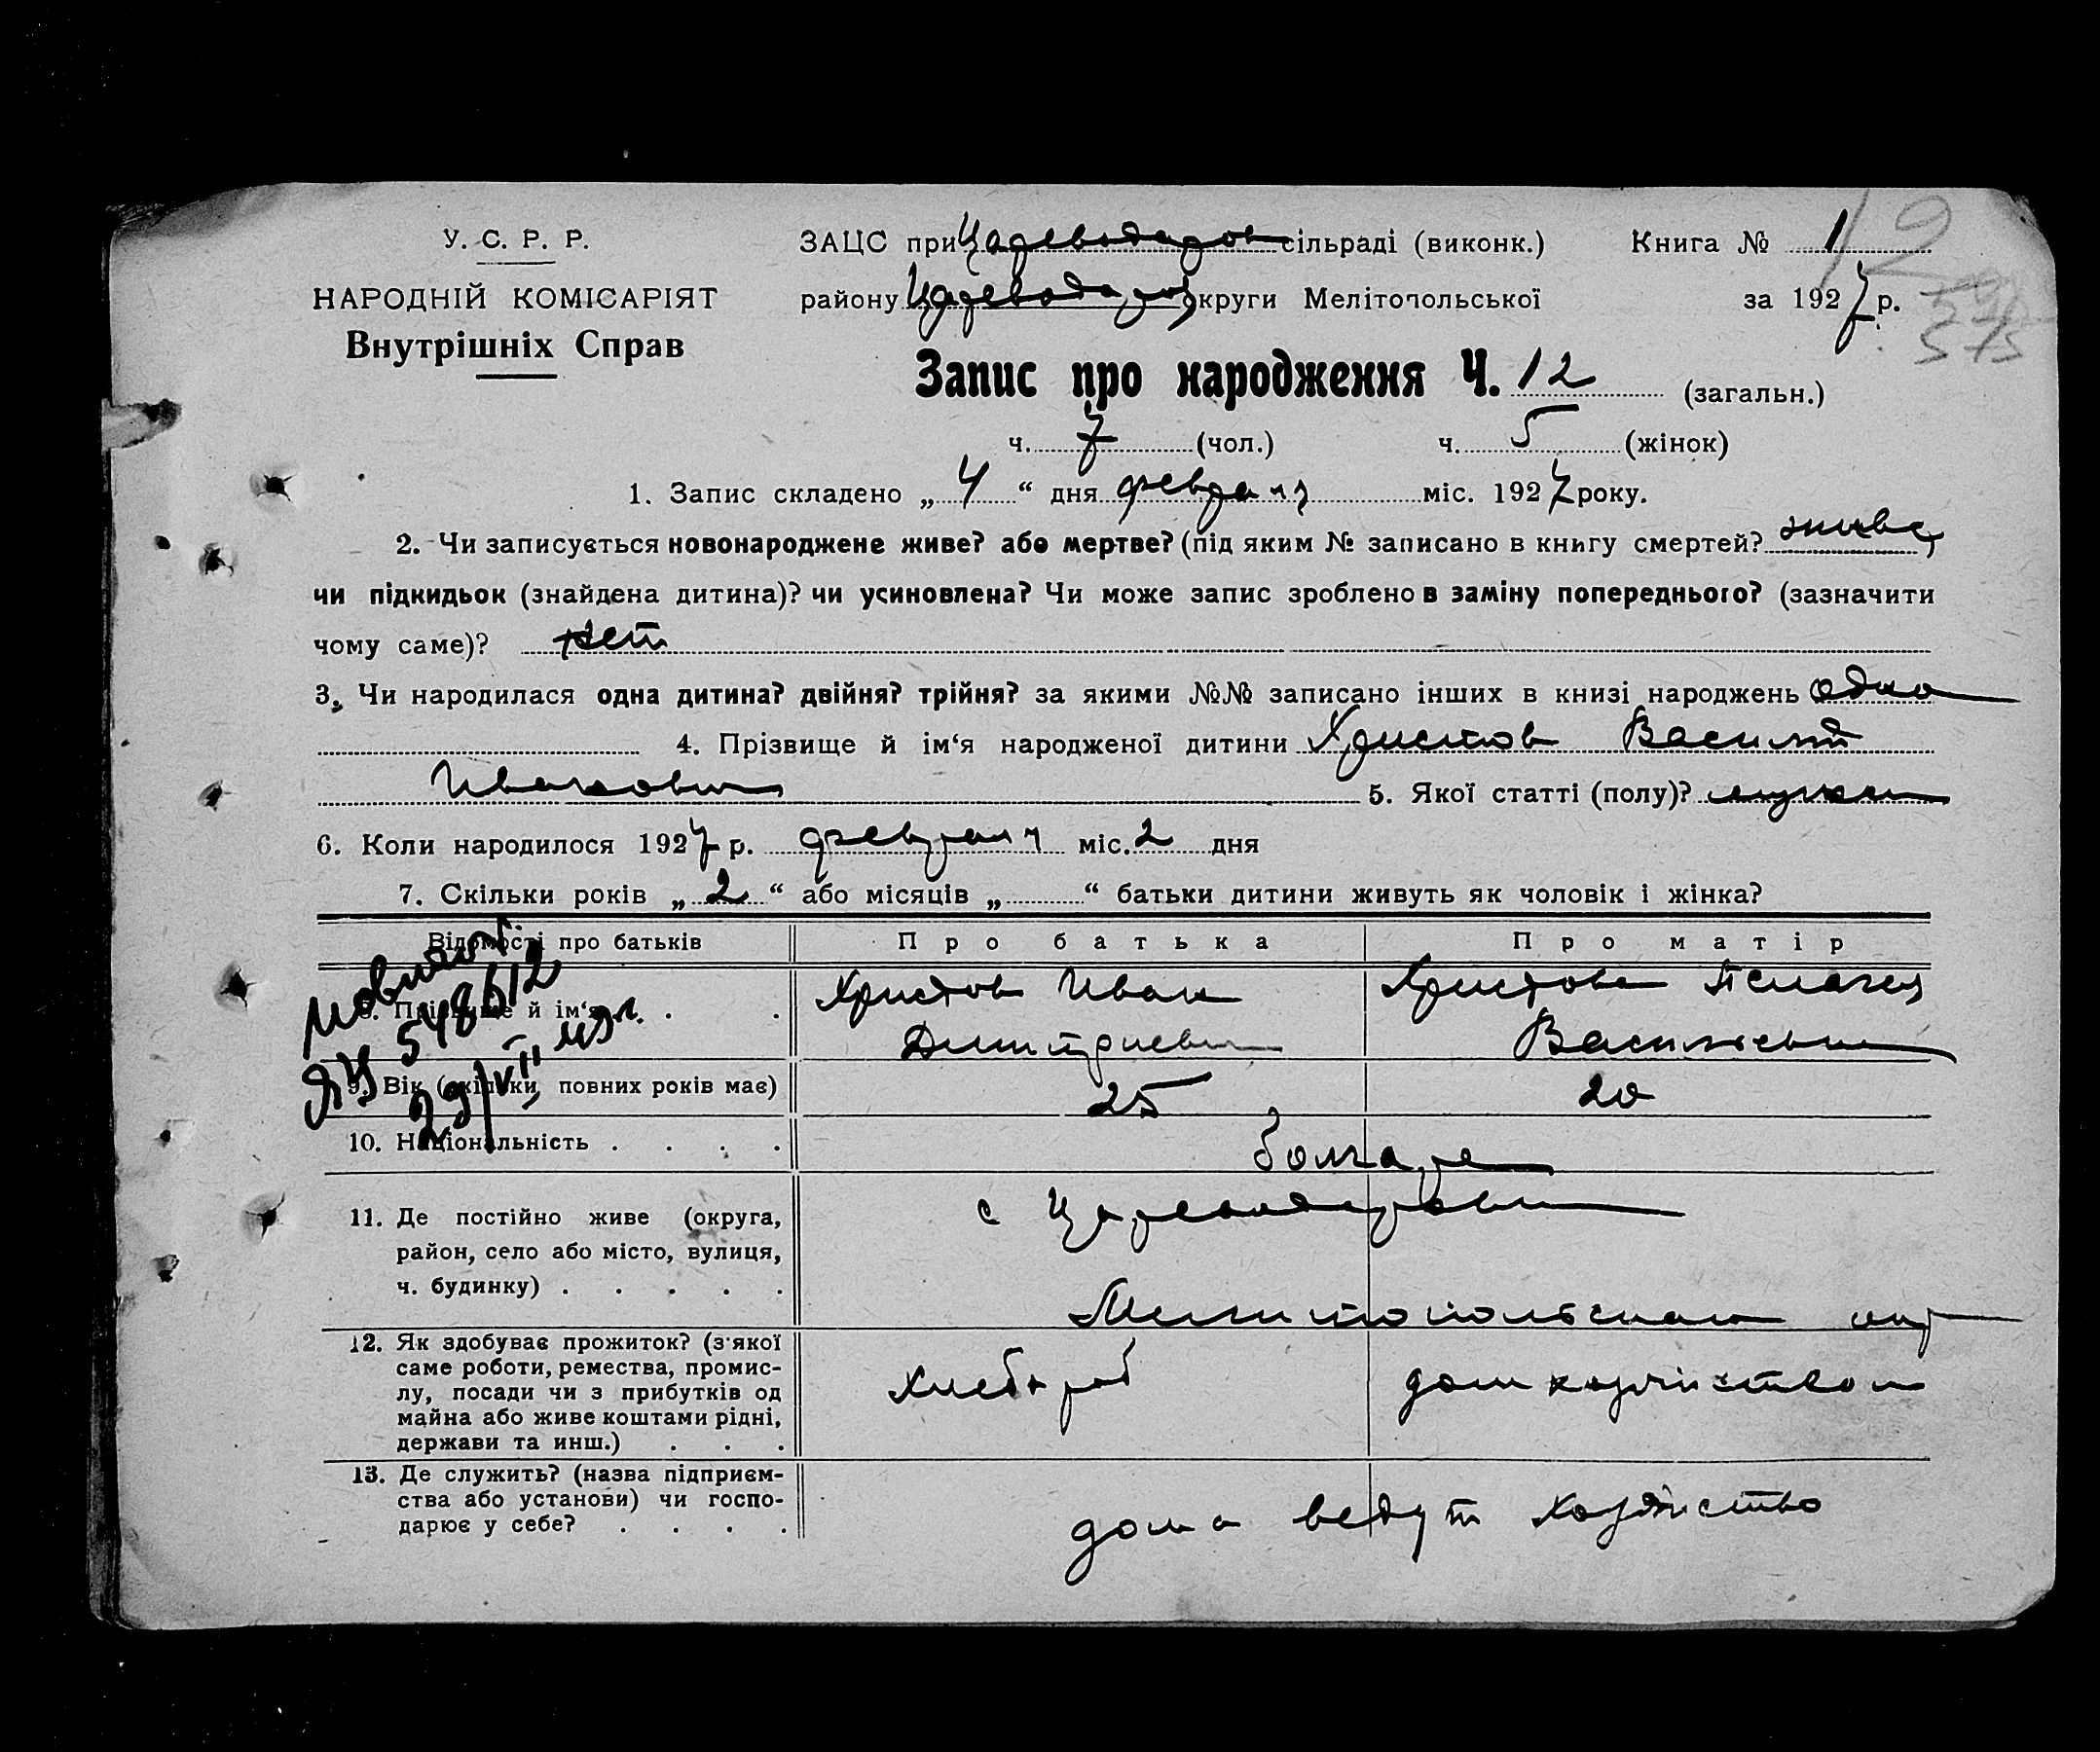 У. С. Р. Р.
НАРОДНІЙ КОМІСАРІЯТ
Внутрішніх Справ
ЗАЦС при Цареводаров сільраді (виконк.) Книга № 1
району Цареводаров округи Мелітопольської за 1927 р.
Запис про народження Ч. 12 (загальн.)
ч. 7 (чол.) ч. 5 (жінок)
1. Запис складено „ 4 “ дня февраля міс. 1927 року.
2. Чи записується новонароджене живе? або мертве? (під яким № записано в книгу смертей?
чи підкидьок (знайдена дитина)? чи усиновлена? Чи може запис зроблено в заміну попереднього? (зазначити
чому саме)? нет
3. Чи народилася одна дитина? двійня? трійня? за якими №№ записано інших в книзі народжень одна
4. Прізвище й ім‘я народженої дитини Христов Василий
Иванович 5. Якої статті (полу)?
6. Коли народилося 1927 р. февраля міс. 2 дня
7. Скільки років „ 2 “ або місяців „ “ батьки дитини живуть як чоловік і жінка?
Відомості про батьків Про батька Про матір
8. Прізвище й ім‘я . . Христов Иван Димитриевич Христова Пелагея Васильевна
9. Вік (скільки повних років має) 25 20
10. Національність . . . . болгаре
11. Де постійно живе (округа,
район, село або місто, вулиця,
ч. будинку) . . . . .
с Цареводаровка
Мелитопольского окр
12. Як здобуває прожиток? (з якої
саме роботи, ремества, промис-
лу, посади чи з прибутків од
майна або живе коштами рідні,
держави та инш.) . . .
хлебороб домхозяйством
13. Де служить? (назва підприєм-
ства або установи) чи госпо-
дарює у себе? . . . .
дома ведут хозяйство
548612
29/VII